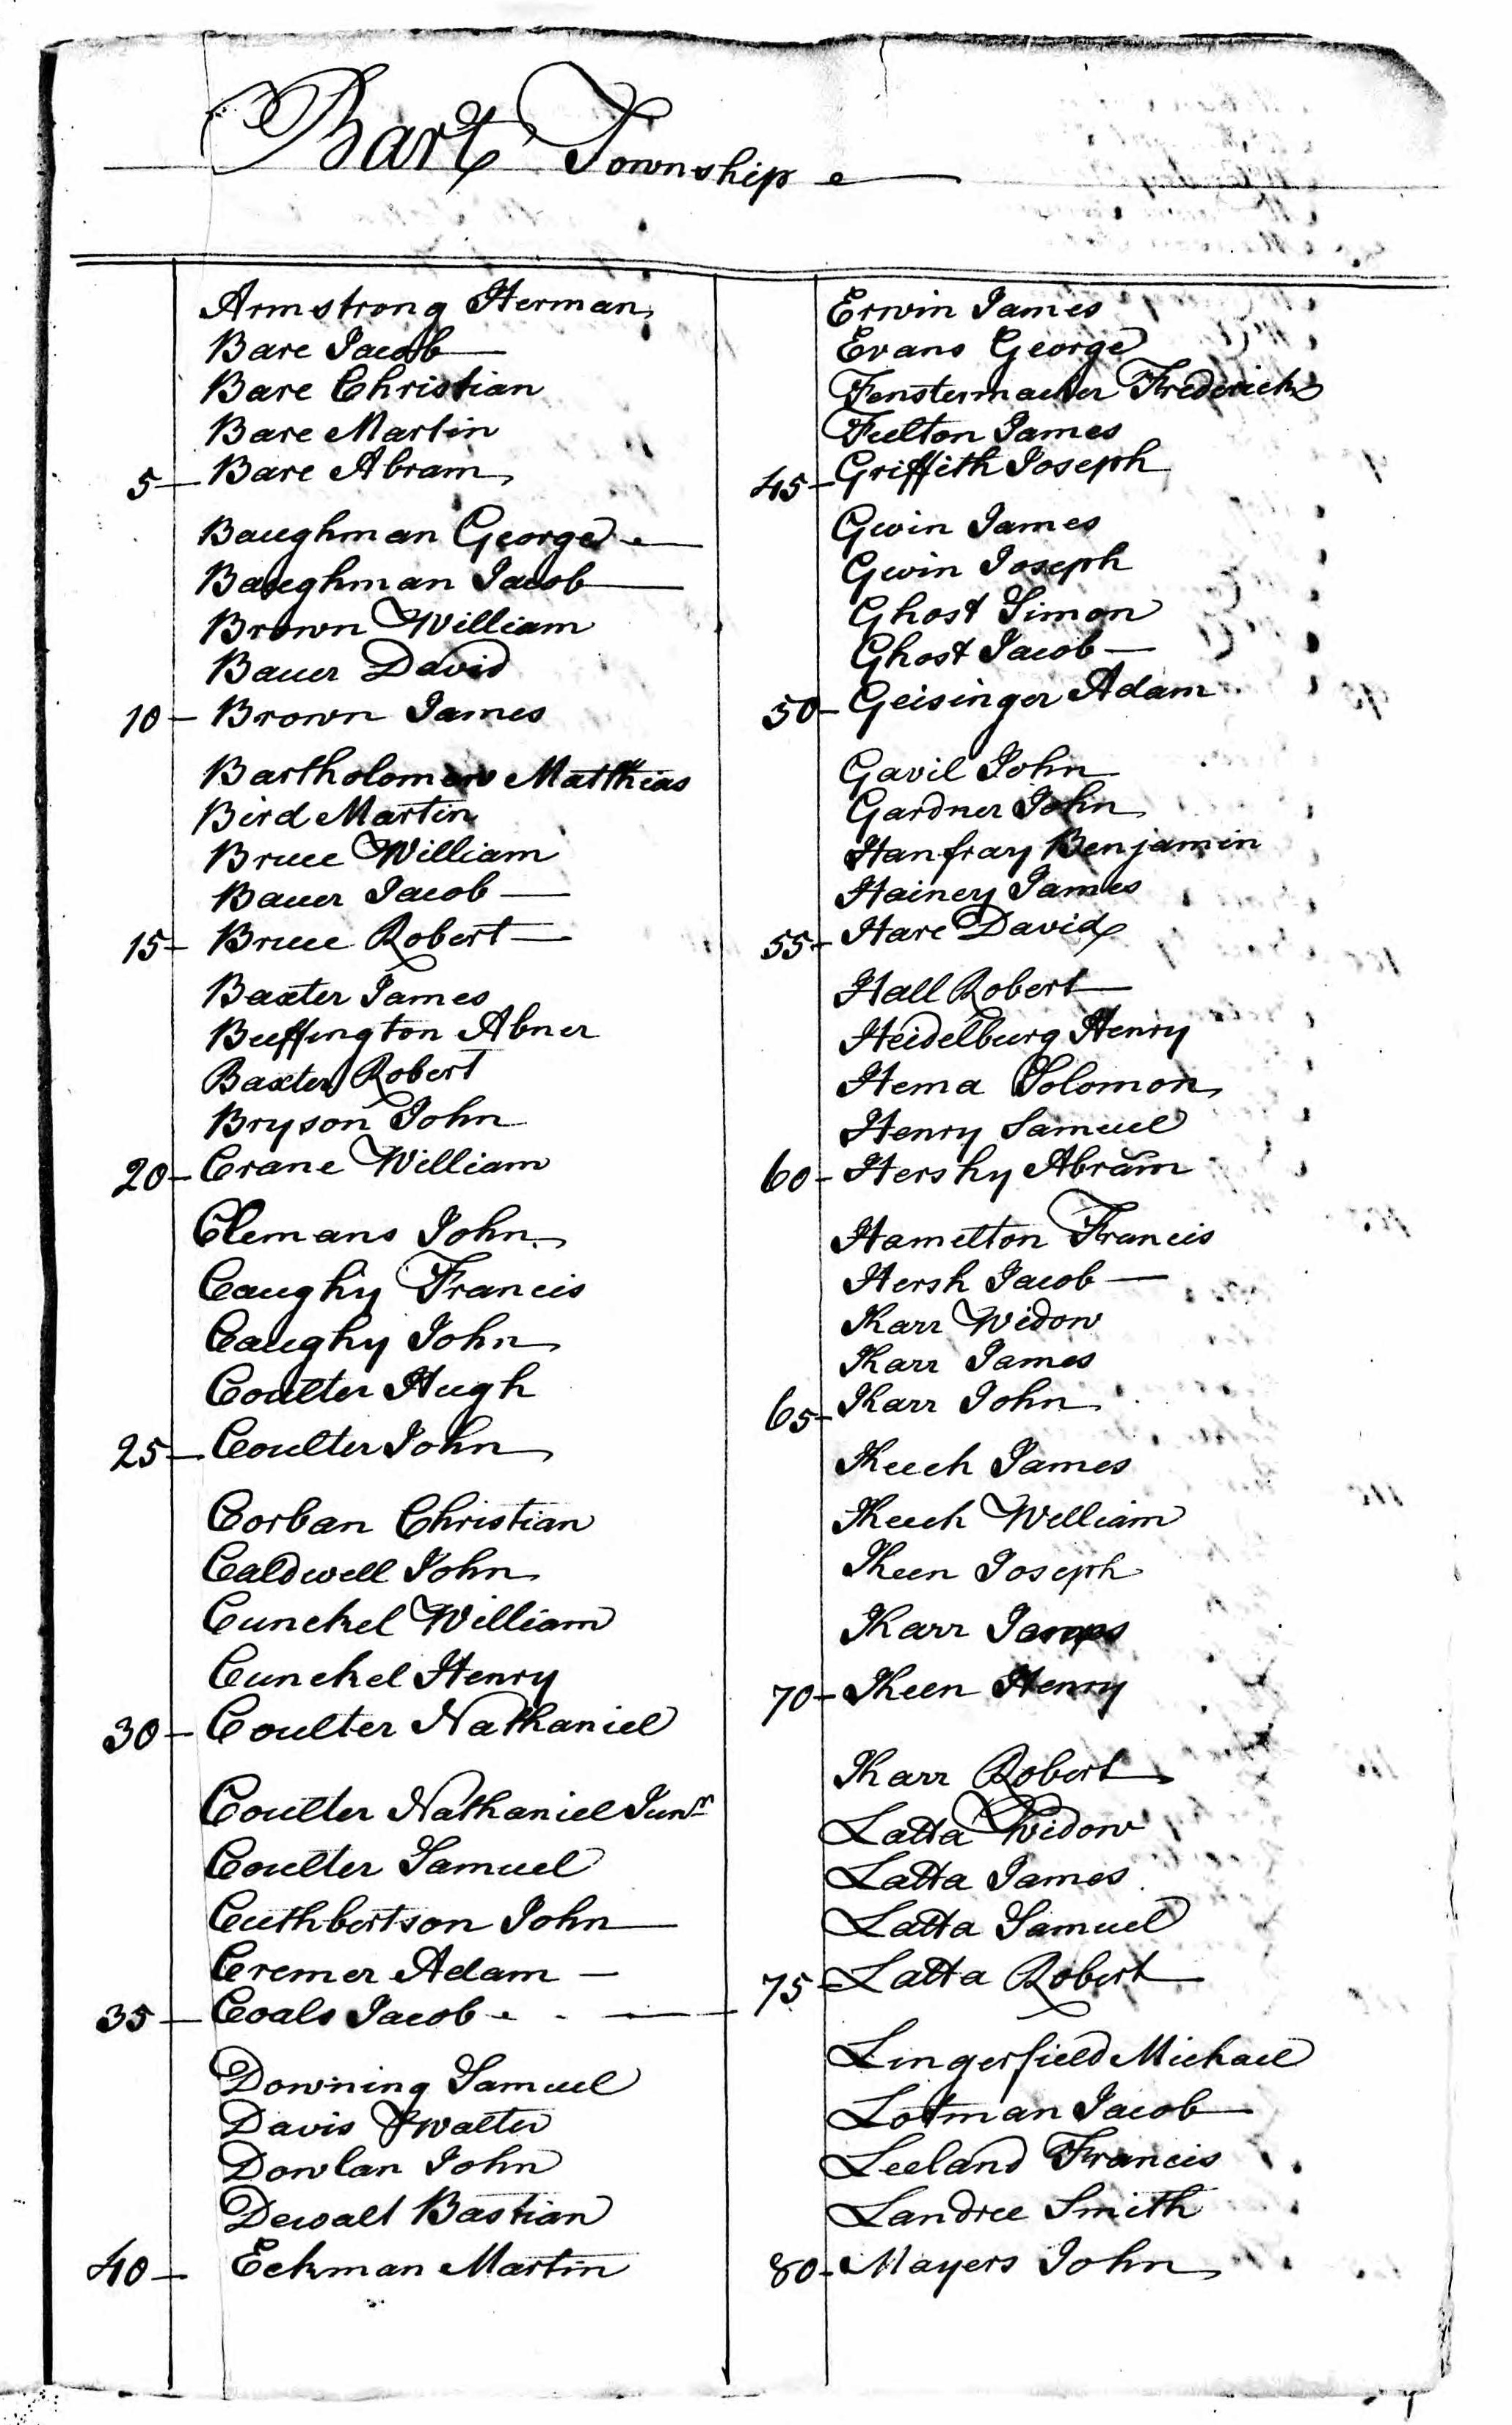 Bart Township
Armstrong Herman
Bare Jacob
Bare Christian
Bare Martin
5 Bare Abram
Baughman George
Baughman Jacob
Brown William
Bauer David
10 Brown James
Bartholomew Matthias
Bird Martin
Bruce William
Bauer Jacob
15 Bruce Robert
Baxter James
Buffington Abner
Baxter Robert
Bryson John
20 Crane William
Clemans John
Caughy Francis
Caughy John
Coulter Hugh
25 Coulter John
Corban Christian
Caldwell John
Cunckel William
Cunckel Henry
30 Coulter Nathaniel
Coulter Nathaniel Junr
Coulter Samuel
Cuthbertson John
Cremer Adam
35 Coals Jacob
Downing Samuel
Davis Walter
Dowlan John
Dewalt Bastian
40 Eckman Martin
Erwin James
Evans George
Fenstermacher Frederick
Fulton James
45 Griffith Joseph
Gwin James
Gwin Joseph
Ghost Simon
Ghost Jacob
50 Geisinger Adam
Gavil John
Gardner John
Hanfray Benjamin
Hainey James
55 Hare David
Hall Robert
Heidelburg Henry
Hema Solomon
Henry Samuel
60 Hershy Abram
Hamelton Francis
Hersh Jacob
Karr Widow
Karr James
65 Karr John
Keech James
Keech William
Keen Joseph
Karr James
70 Keen Henry
Karr Robert
Latta Widow
Latta James
Latta Samuel
75 Latta Robert
Lingerfield Michael
Lotman Jacob
Leeland Francis
Landree Smith
80 Mayers John